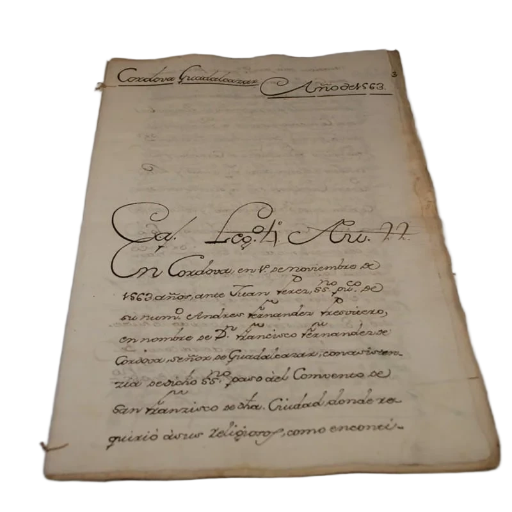 Cordova Guadalcazar
Año de 1563.
Ca. Lego. 4º Arti. 22
En Cordova, en 1º de noviembre de
1563 años, ante Juan Perez, ssno. puco. de
su numo. Andres Fernandez Tresviero,
en nombre de Dn. Francisco Fernandez de
Cordova señor de Guadalcazar, con asisten-
zia de dicho ssno. paso àel Convento de
San Franzisco de dha. Ciudad, donde re-
quirió à sus Religiosos, como en conci-